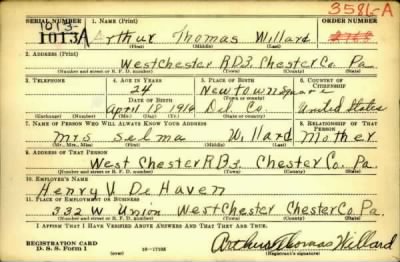 3586-A
SERIAL NUMBER 1. NAME (Print) ORDER NUMBER
1013-
1013A Arthur Thomas Willard
(First) (Middle) (Last)
2. ADDRESS (Print)
West Chester R.D3. Chester Co. Pa.
(Number and street or R. F. D. number) (Town) (County) (State)
3. TELEPHONE 4. AGE IN YEARS 5. PLACE OF BIRTH 6. COUNTRY OF CITIZENSHIP
24 Newtown Square
DATE OF BIRTH Del Co. United States
April 18 1916
(Exchange) (Number) (Mo.) (Day) (Yr.) (Town or county) (State or country)
7. NAME OF PERSON WHO WILL ALWAYS KNOW YOUR ADDRESS 8. RELATIONSHIP OF THAT PERSON
Mrs Selma Willard Mother
(Mr., Mrs., Miss) (First) (Middle) (Last)
9. ADDRESS OF THAT PERSON
West Chester R.D3. Chester Co. Pa
(Number and street or R. F. D. number) (Town) (County) (State)
10. EMPLOYER'S NAME
Henry V De Haven
11. PLACE OF EMPLOYMENT OR BUSINESS
332 W Union West Chester Chester Co. Pa.
(Number and street or R. F. D. number) (Town) (County) (State)
I AFFIRM THAT I HAVE VERIFIED ABOVE ANSWERS AND THAT THEY ARE TRUE.
REGISTRATION CARD
D. S. S. Form 1 (over) 16—17105 Arthur Thomas Willard
(Registrant's signature)